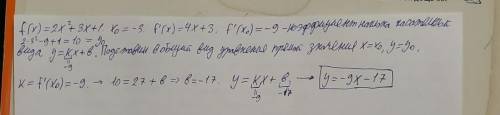 f(x)=2x²+3x+1. x₀=-3. f'(x)=4x+3. f'(x₀)=-9 - коэффициент наклона касательной
2·3²-9+1=10=y₀
вида y=kx+b. Подставим в общий вид уравнения прямой значения x=x₀, y=y₀.
-9
k=f'(x₀)=-9. → 10=27+b ⇒ b=-17. y=kx+b → y=-9x-17
-9 -17